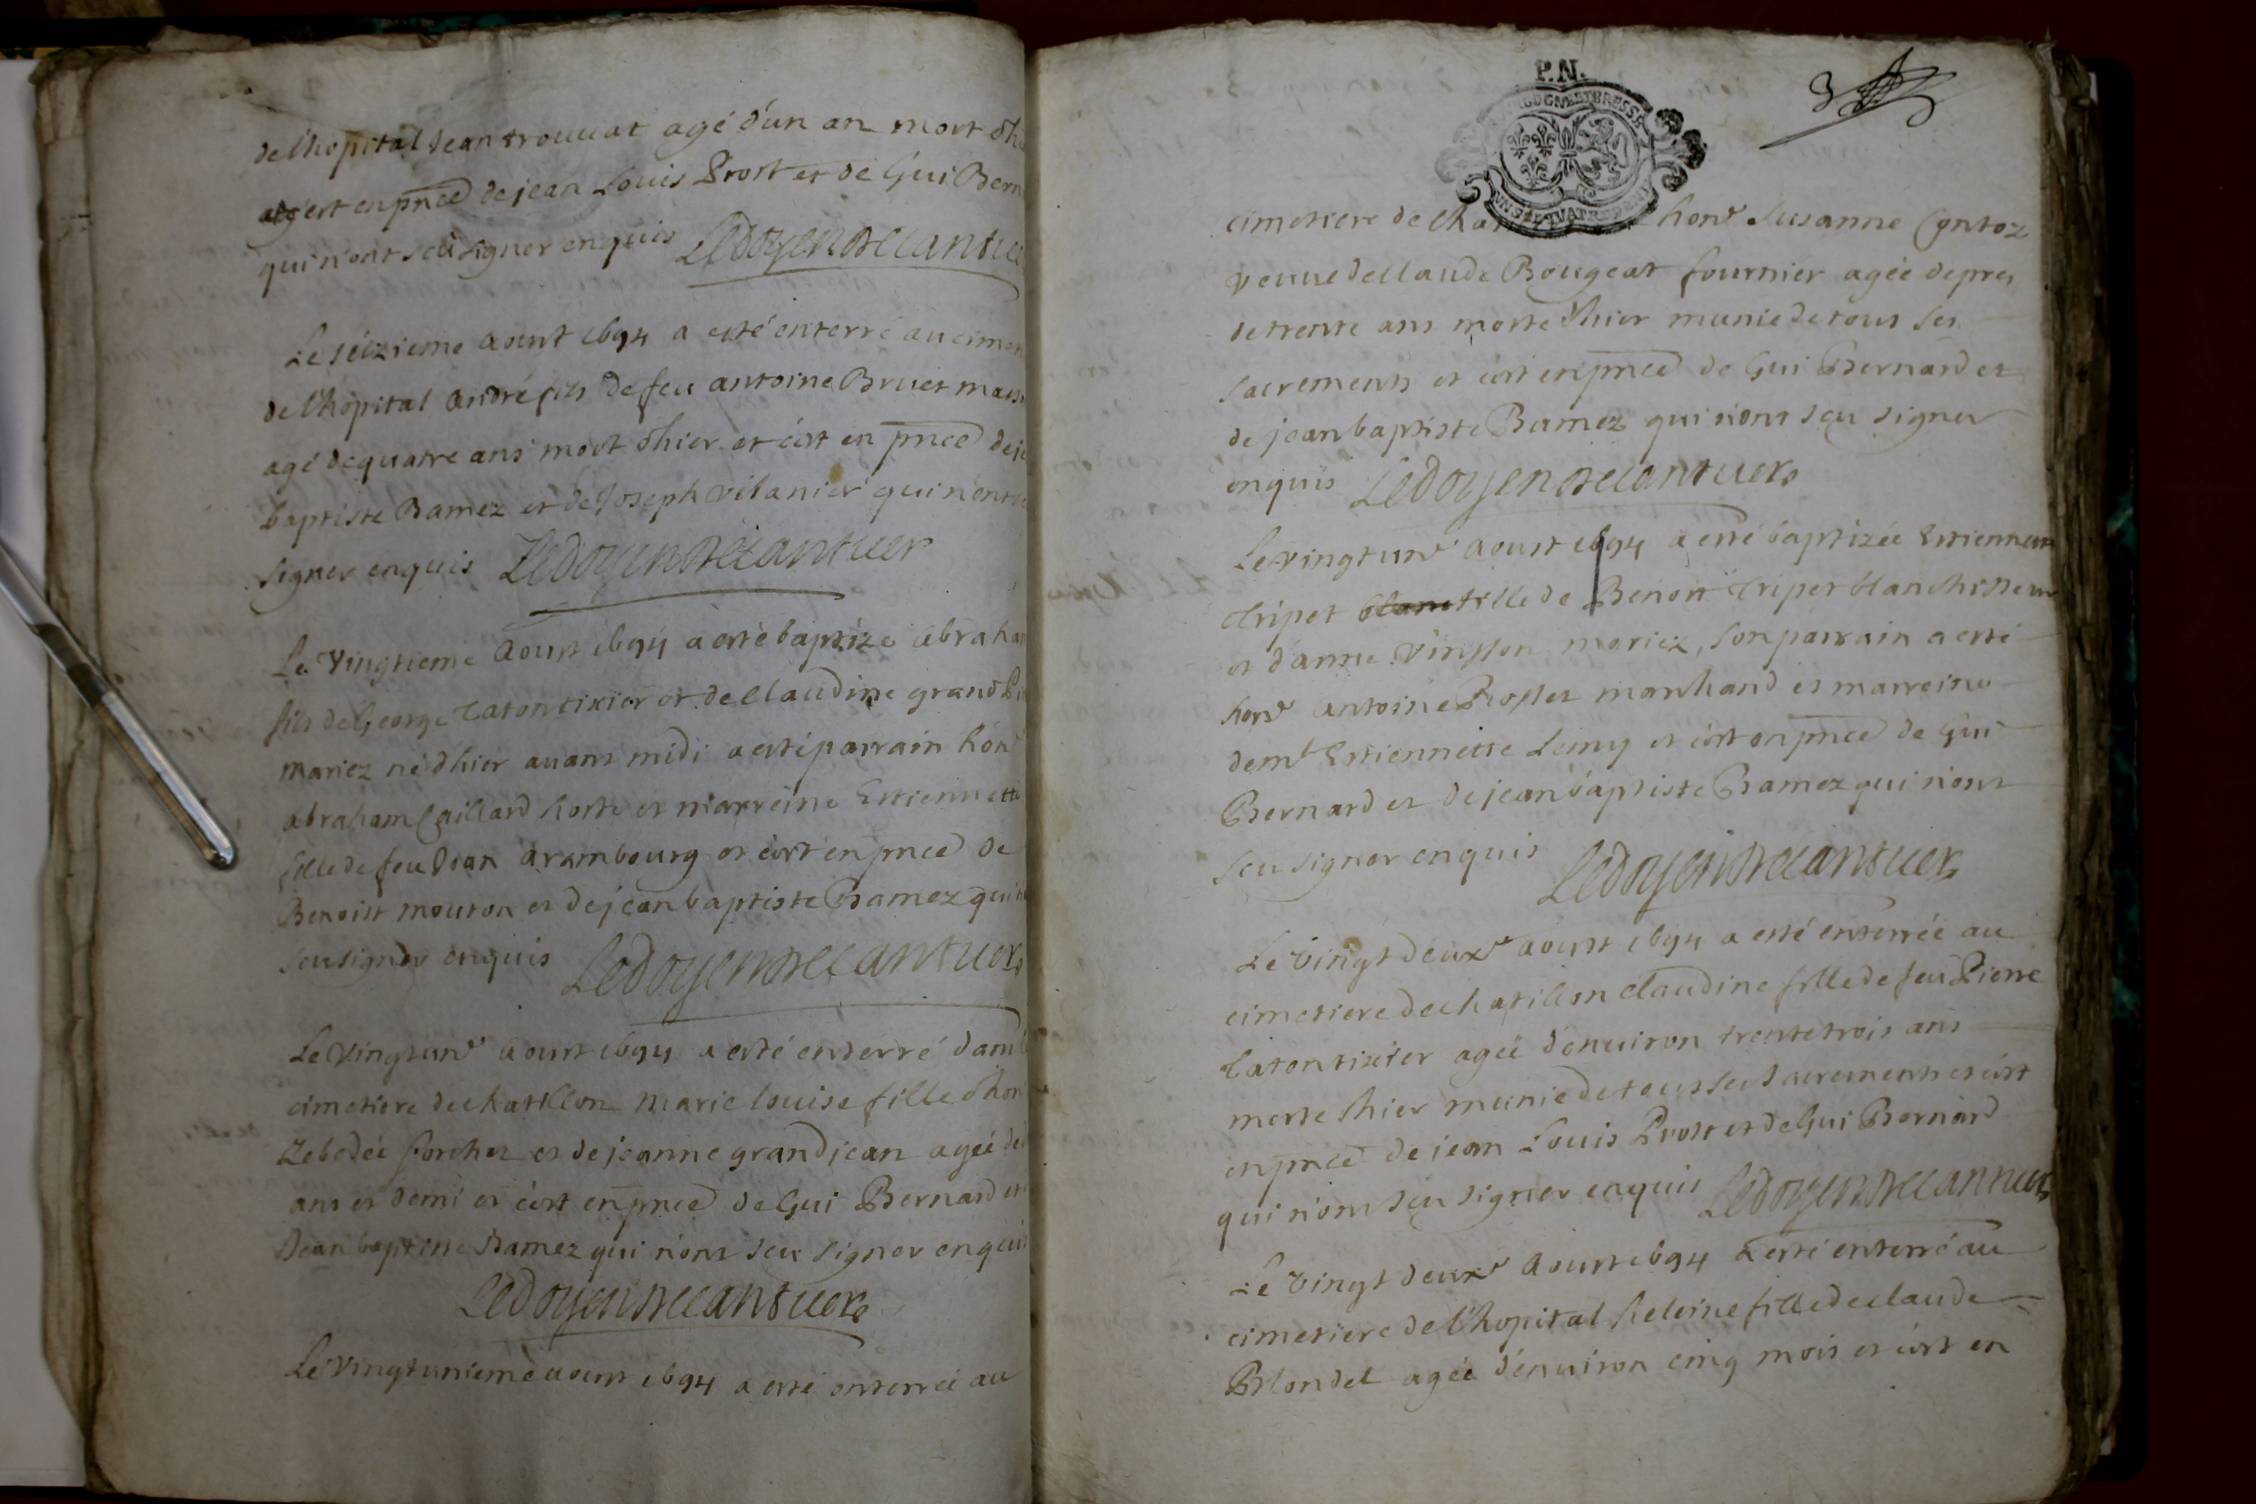 de l'hopital Jean trouvat agé d'un an mort d'hi
et c'est en pnce de jean Louis Prost et de Gui Bern
qui n'ont sçu signer enquis Ledoyen
Le séizieme aoust 1694 a esté enterré au cimet
de l'hopital andré fils de feu antoine Bruet
agé de quatre ans mort d'hier et c'est en pnce de je
baptiste Bamez et de Joseph vilanier qui n'ont
signer enquis Ledoyen
Le vingtieme aoust 1694 a esté baptizé abraham
fils de George Catontixier et de Claudine grand
mariez né d'hier avant midi a esté parrain hon
abraham Caillard hoste et marreine Estiennette
fille de feu Jean arambourg et c'est en pnce de
Benoist mouton et de jean baptiste Bamez qui
sçu signer enquis Ledoyen
Le vingtun.e aoust 1694 a esté enterré dans
cimetiere de chatillon Marie louise fille d'hon
Zebedée forchet et de jeanne grandjean agée de
ans et demi et c'est en pnce de Gui Bernard et
Jean baptiste Bamez qui n'ont sçu signer enquis
Ledoyen
Le vingtunieme aoust 1694 a esté enterrée au
P.N.
3
cimetiere de cha hon.e Susanne Contoz
veuve de claude Bougeat fournier agée de pres
de trente ans morte d'hier munie de tous ses
sacrements et c'est en pnce de Gui Bernard et
de jean baptiste Bamez qui n'ont sçu signer
enquis Ledoyen
Le vingtun.e aoust 1694 a esté baptizée Estiennette
Tripet fille de Benoit Tripet blanchisseur
et d'anne mariez, son parrain a esté
hon.e antoine Rosset marchand et marreine
dem.le Estiennette Lemy et c'est en pnce de Gui
Bernard et de jean baptiste Bamez qui n'ont
sçu signer enquis Ledoyen
Le vingt deux.e aoust 1694 a esté enterrée au
cimetiere de chatillon claudine fille de feu Pierre
Catontixier agée d'environ trente trois ans
morte d'hier munie de tous ses sacrements et c'est
en pnce de jean Louis Prost et de Gui Bernard
qui n'ont sçu signer enquis Ledoyen
Le vingt deux.e aoust 1694 a esté enterré au
cimetiere de l'hopital heleine fille de claude
Blondet agée d'environ cinq mois et c'est en